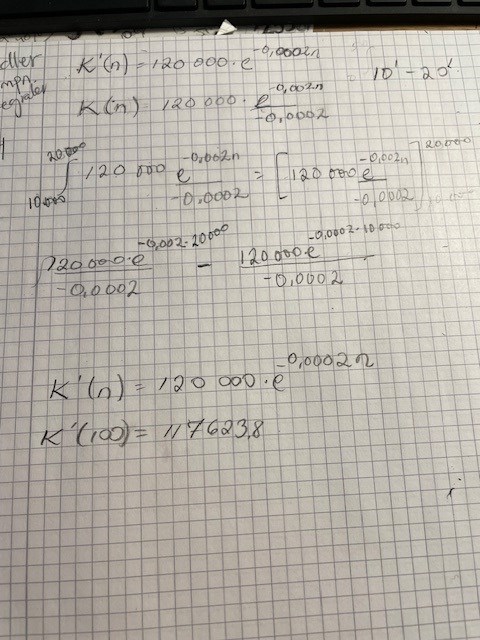 K'(n) = 120 000 · e^-0,0002n
10' - 20'
K(n) = 120 000 · e^-0,002n / -0,0002
20.000 ∫ 10.000 120 000 e^-0,002n / -0.0002 = [120 000 e^-0,002n / -0,0002] 20.000
120 000 · e^-0,002·20000 / -0,0002 - 120 000 e^-0,0002·10.000 / -0,0002
K'(n) = 120 000 · e^-0,0002n
K'(100) = 117623,8